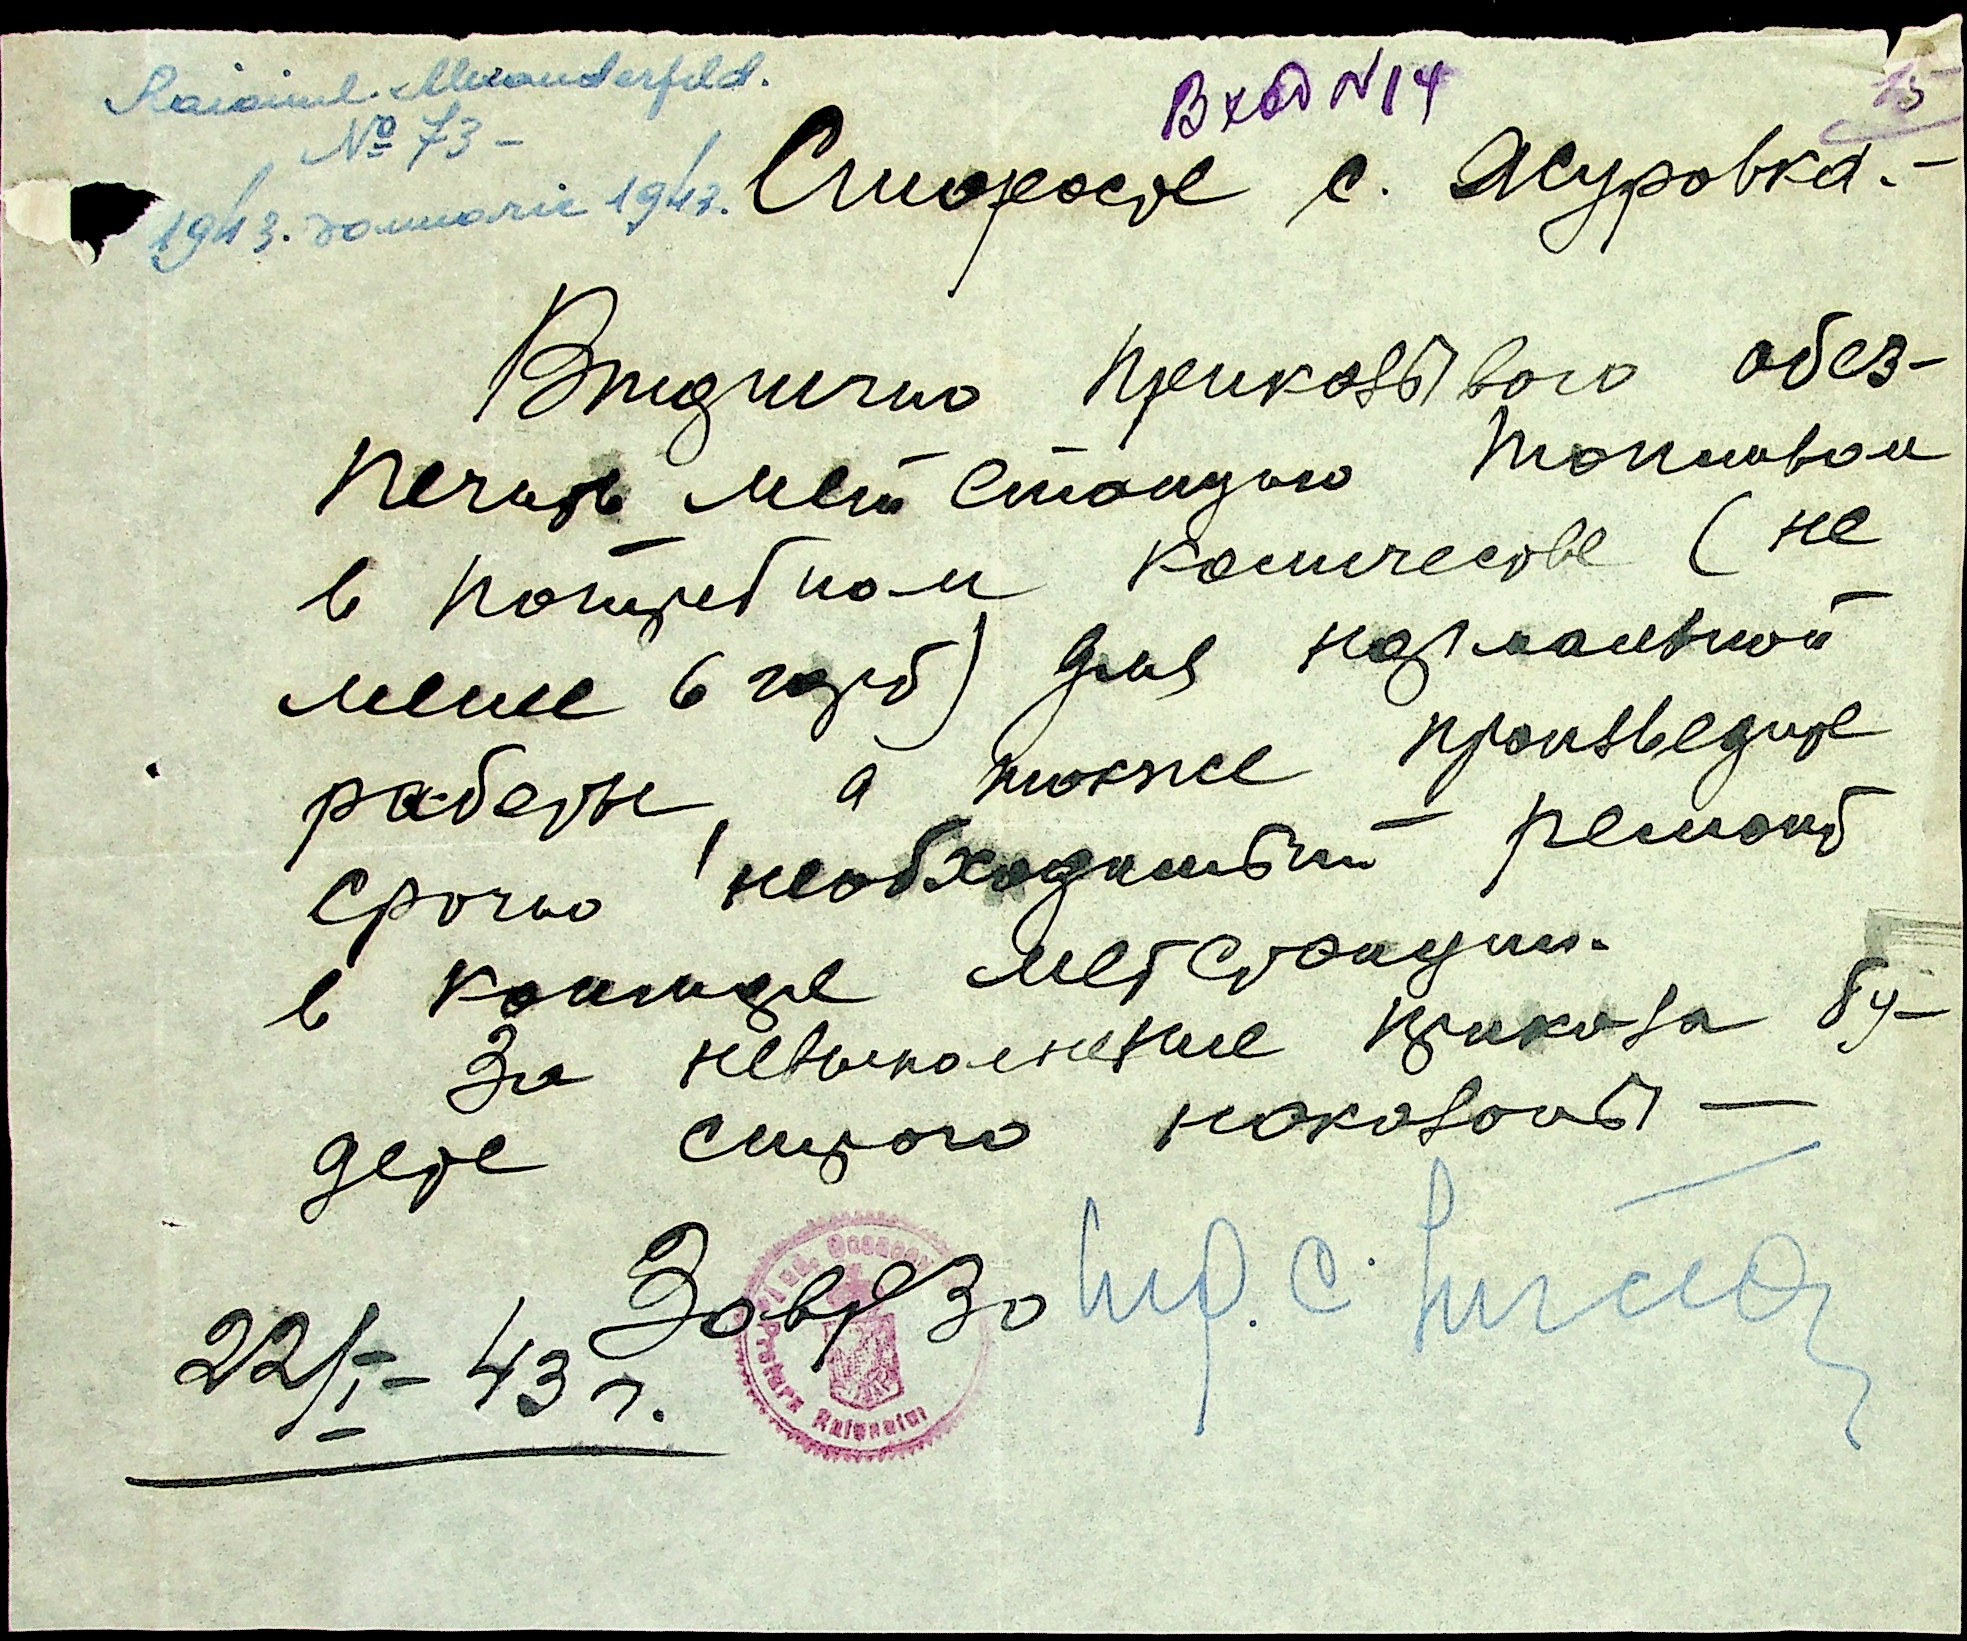 Raionul Alexanderfeld.
№ 73 –
1943. ianuarie 1943.
Вход N 14
15
Старосте с. Ясуровка.–
Вторично приказываю обез-
печить метстанцию топливом
в потребном количестве (не
менее 6 гарб) для нормальной
работы, а также произведите
срочно необходимый ремонт
в комнате метстанции.
За невыполнение приказа бу-
дете строго наказаны –
22/I – 43 г.
Pretura Raionului